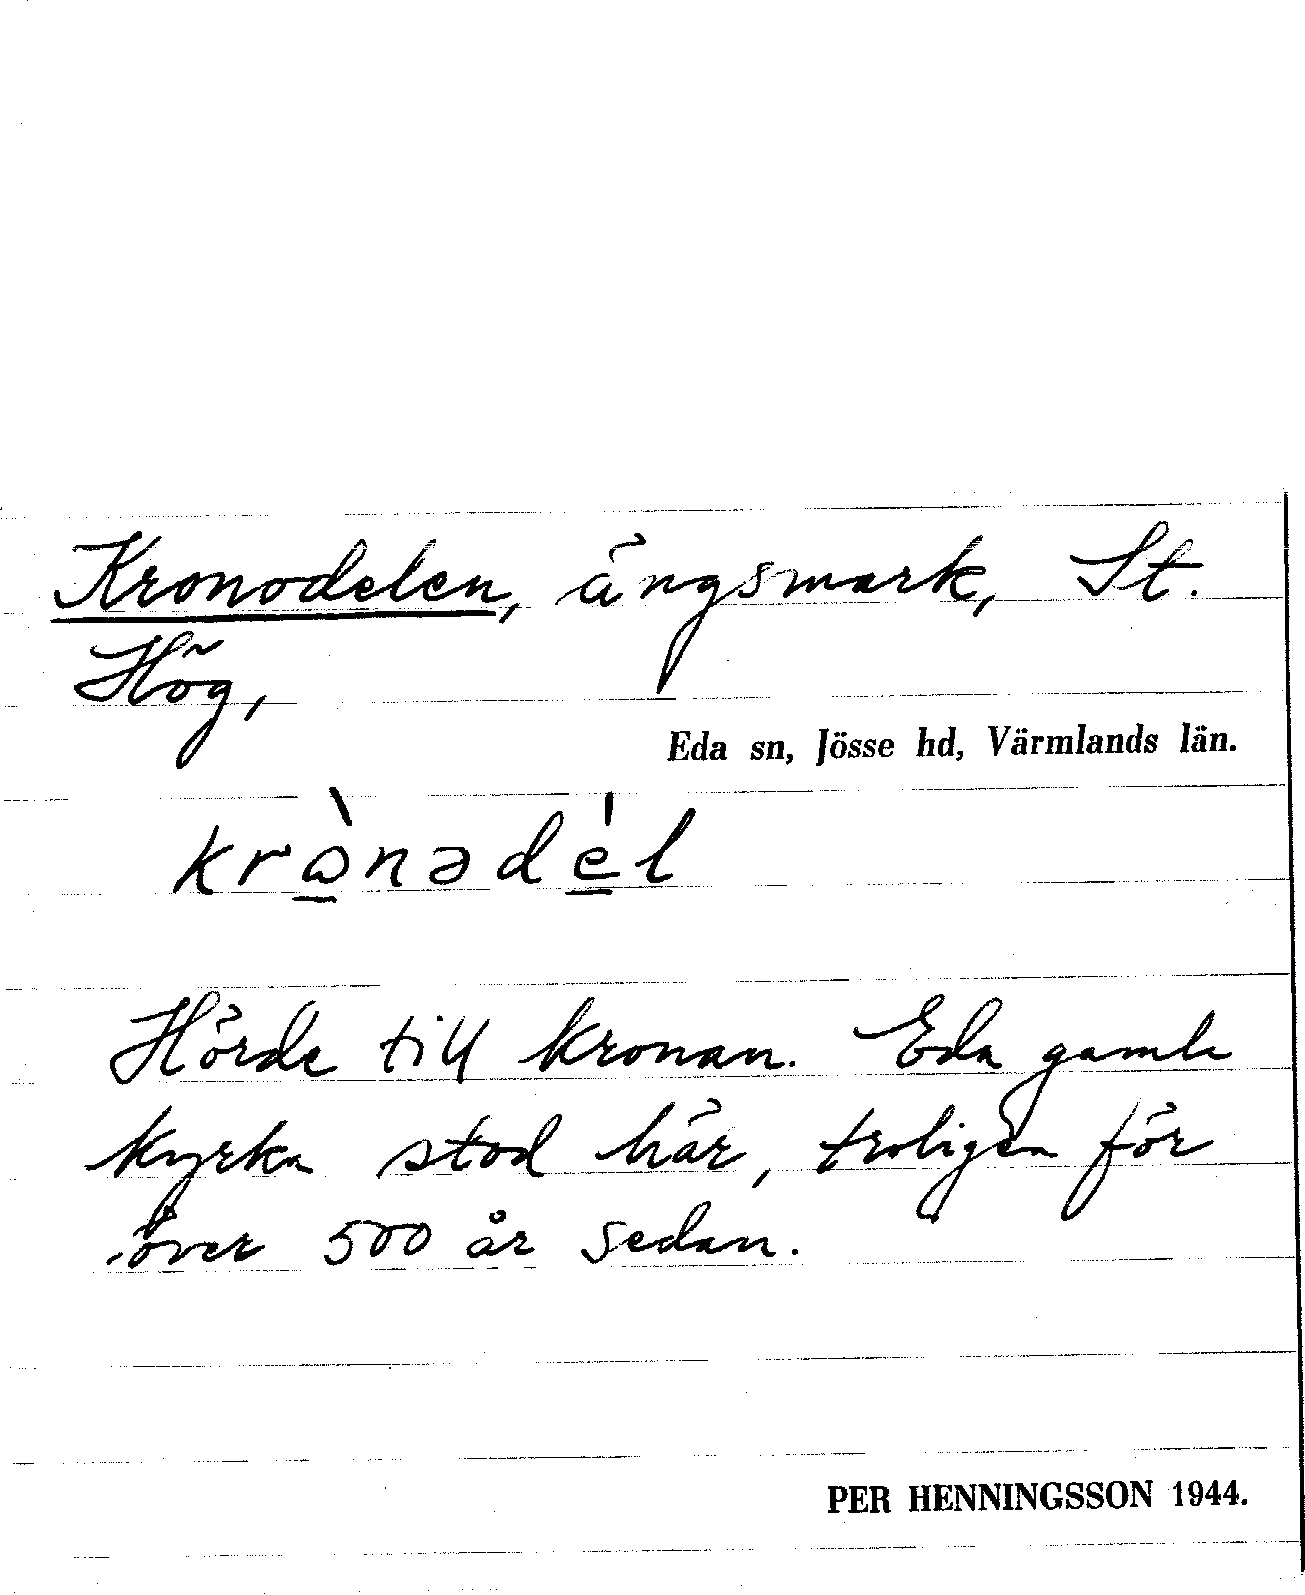 Kronodelen, ängsmark, St.
Hög,
Eda sn, Jösse hd, Värmlands län.
krꞷ̱̀nədé̱l
Hörde till kronan. Eda gamla
kyrka stod här, troligen för
över 500 år sedan.
PER HENNINGSSON 1944.